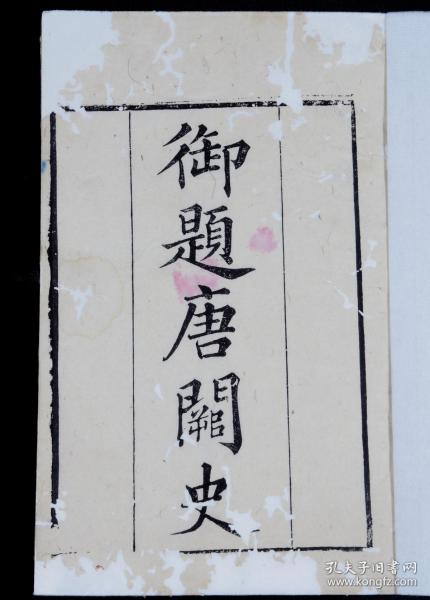 御題唐闕史
孔夫子旧书网
www.kongfz.com